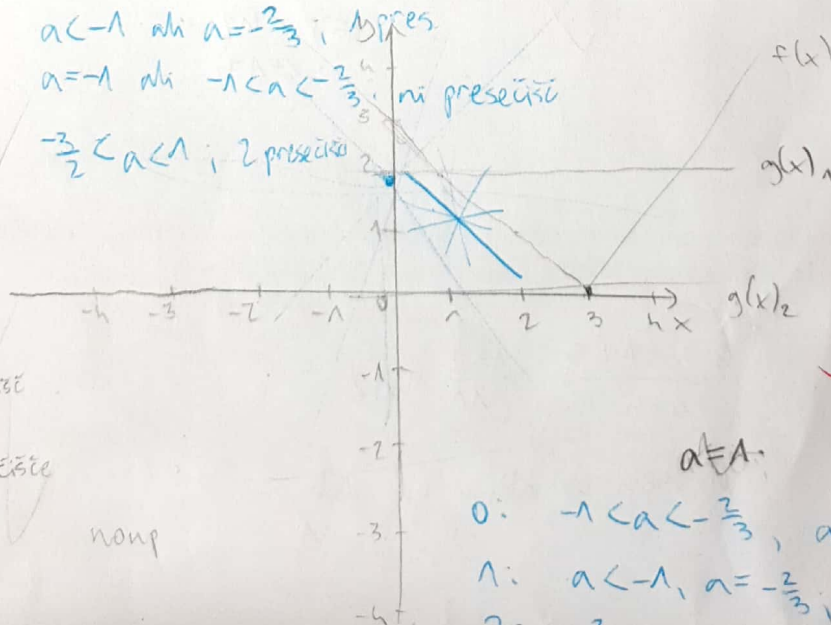 a<-1 ali a=-2/3 ; 1 pres.
a=-1 ali -1<a<-2/3 ; ni presečišč
-3/2 < a<1 ; 2 presečišči
f(x)
g(x)₁
g(x)₂
4
3
2
1
-4 -3 -2 -1 0 1 2 3 4 x
-1
-2
-3
-4
a=1.
0: -1<a<-2/3, a
1: a<-1, a=-2/3,